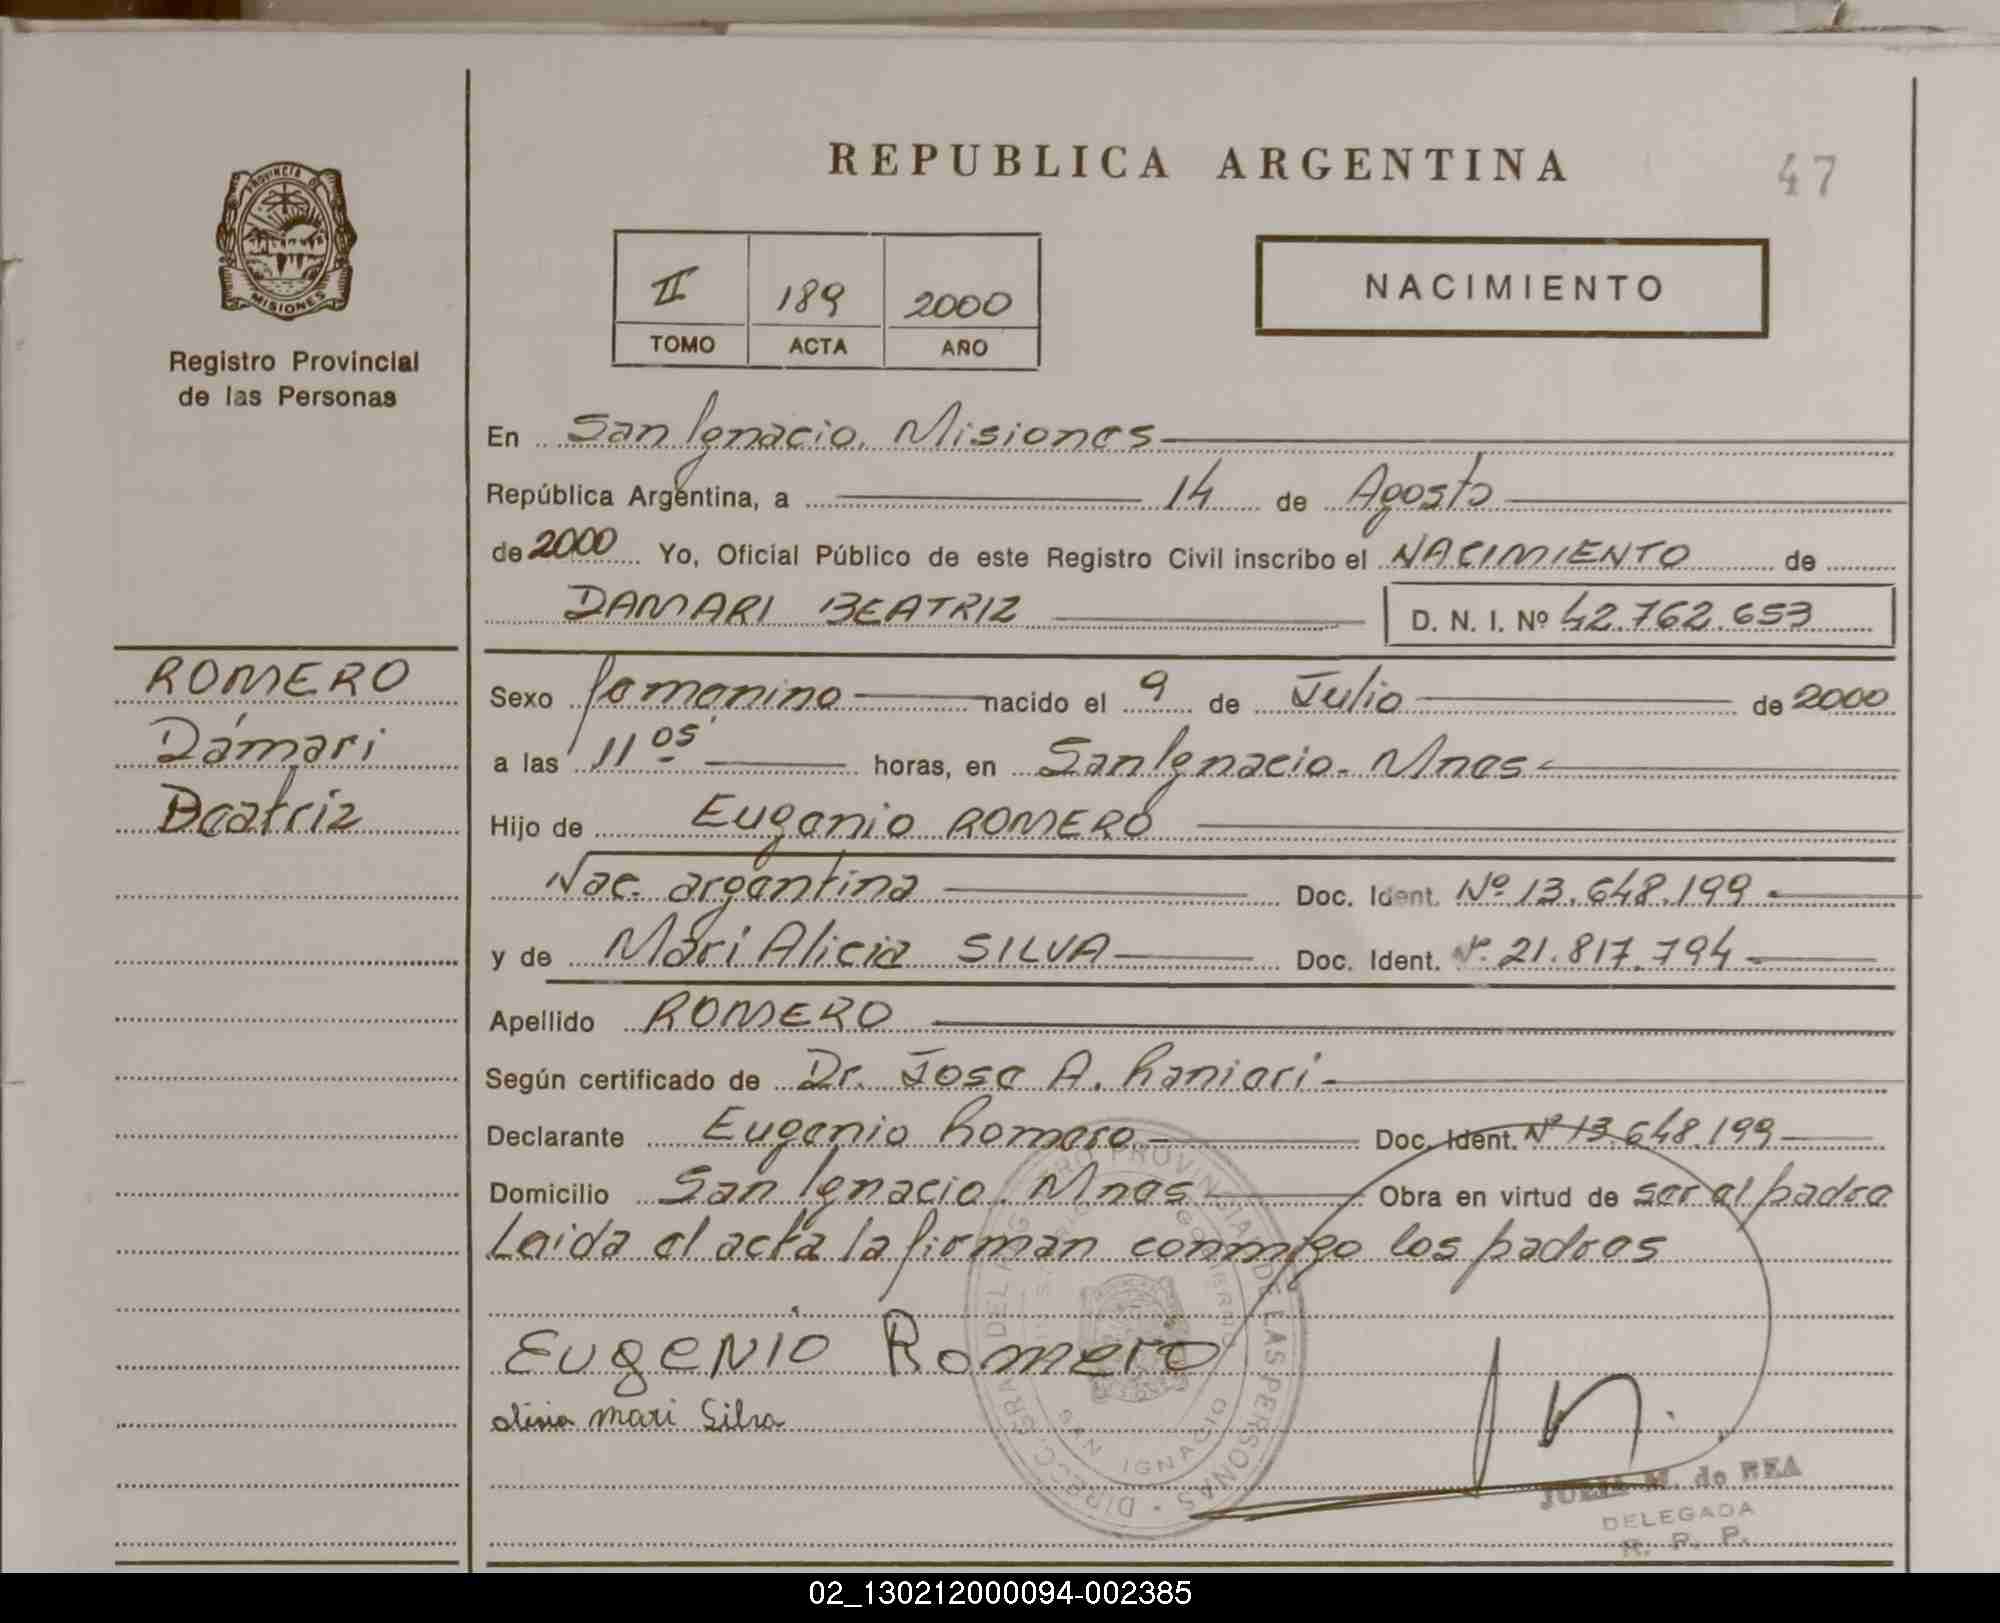 REPUBLICA ARGENTINA
47
PROVINCIA DE
MISIONES
Registro Provincial
de las Personas
II 189 2000
TOMO ACTA AÑO
NACIMIENTO
En San Ignacio. Misiones
República Argentina, a 14 de Agosto
de 2000 Yo, Oficial Público de este Registro Civil inscribo el NACIMIENTO de
DAMARI BEATRIZ D. N. I. Nº 42.762.653
ROMERO
Dámari
Beatriz
Sexo femenino nacido el 9 de Julio de 2000
a las 11 05 horas, en San Ignacio. Mnes
Hijo de Eugenio ROMERO
Nac. argentina Doc. Ident. Nº 13.648.199
y de Mari Alicia SILVA Doc. Ident. Nº 21.817.794
Apellido ROMERO
Según certificado de Dr. Jose A. Ranieri
Declarante Eugenio Romero Doc. Ident. Nº 13.648.199
Domicilio San Ignacio. Mnes Obra en virtud de ser el padre
Leida el acta la firman conmigo los padres
EUGENIO Romero
alisia mari Silva
DIRECC. GRAL. DEL REGISTRO PROVINCIAL DE LAS PERSONAS
SAN IGNACIO
JULIA M. de REA
DELEGADA
R. P. P.
02_130212000094-002385